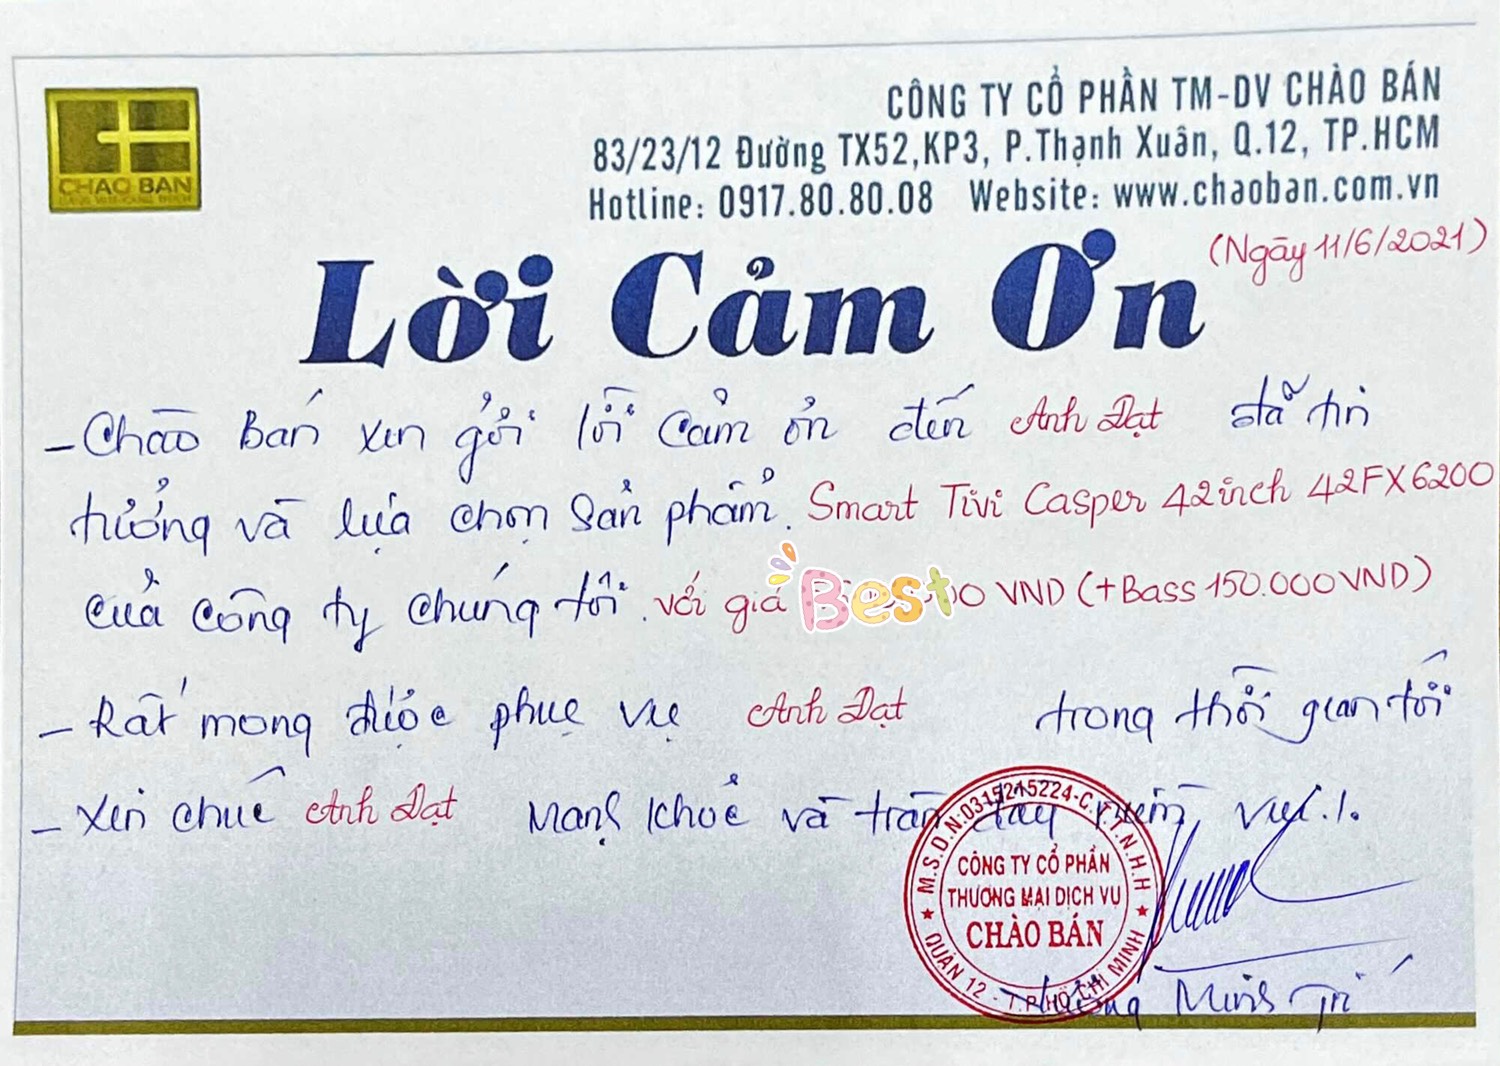 CHAO BAN
CÔNG TY CỔ PHẦN TM-DV CHÀO BÁN
83/23/12 Đường TX52,KP3, P.Thạnh Xuân, Q.12, TP.HCM
Hotline: 0917.80.80.08 Website: www.chaoban.com.vn
(Ngày 11/6/2021)
Lời Cảm Ơn
- Chào Bán xin gởi lời cảm ơn đến Anh Đạt đã tin
tưởng và lựa chọn sản phẩm. Smart Tivi Casper 42inch 42FX6200
của công ty chúng tôi. với giá Best 00 VND (+Bass 150.000VND)
- Rất mong được phục vụ Anh Đạt trong thời gian tới
- Xin chúc Anh Đạt mạnh khoẻ và tràn đầy niềm vui./.
M.S.D.N:0315215224-C.T.T.N.H.H
CÔNG TY CỔ PHẦN
THƯƠNG MẠI DỊCH VỤ
CHÀO BÁN
QUẬN 12 - T.P HỒ CHÍ MINH
Minh Trí